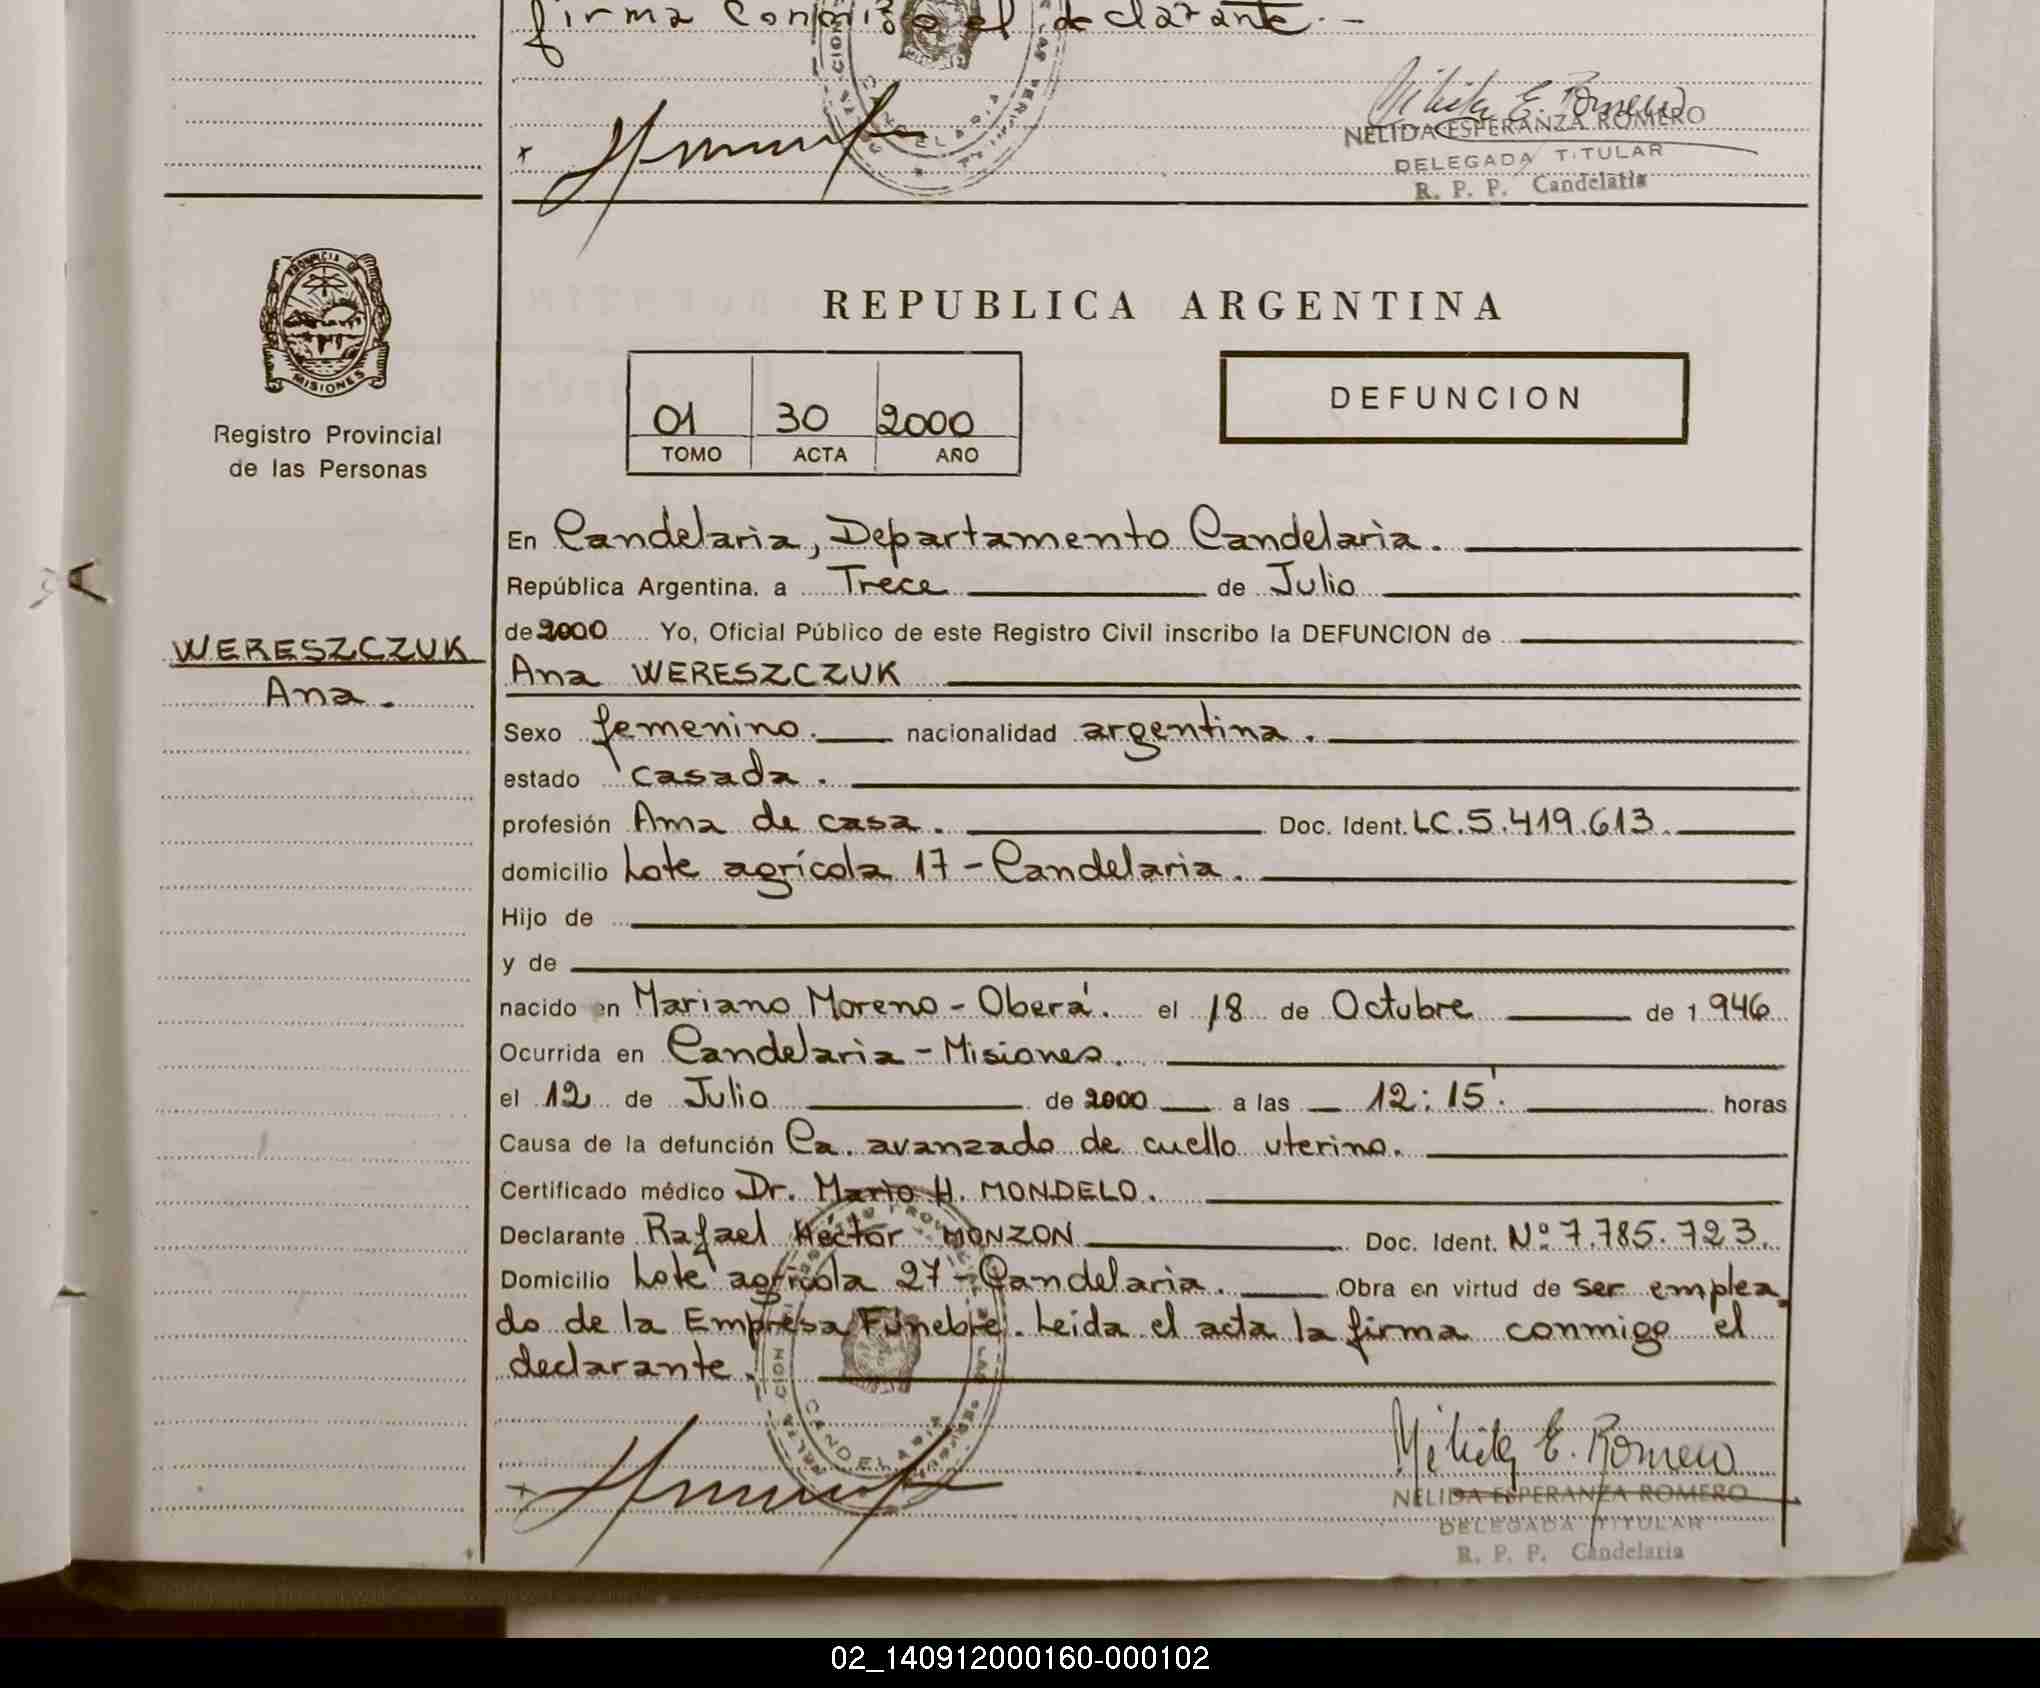 firma conmigo el declarante.-
Nélida E. Romero
NELIDA ESPERANZA ROMERO
DELEGADA TITULAR
R. P. P. Candelaria
PROVINCIA DE
MISIONES
Registro Provincial
de las Personas
REPUBLICA ARGENTINA
01 30 2000
TOMO ACTA AÑO
DEFUNCION
WERESZCZUK
Ana.
En Candelaria, Departamento Candelaria.
República Argentina. a Trece de Julio
de 2000 Yo, Oficial Público de este Registro Civil inscribo la DEFUNCION de
Ana WERESZCZUK
Sexo femenino. nacionalidad argentina.
estado casada.
profesión Ama de casa. Doc. Ident. LC. 5.419.613.
domicilio Lote agrícola 17 - Candelaria.
Hijo de
y de
nacido en Mariano Moreno - Oberá. el 18 de Octubre de 1 946
Ocurrida en Candelaria - Misiones.
el 12 de Julio de 2000 a las 12:15'. horas
Causa de la defunción Ca. avanzado de cuello uterino.
Certificado médico Dr. Mario H. MONDELO.
Declarante Rafael Héctor MONZON Doc. Ident. Nº 7.785.723.
Domicilio Lote agrícola 27 - Candelaria. Obra en virtud de ser emplea
do de la Empresa Fúnebre. Leida el acta la firma conmigo el
declarante.
CANDELARIA
Nélida E. Romero
NELIDA ESPERANZA ROMERO
DELEGADA TITULAR
R. P. P. Candelaria
02_140912000160-000102